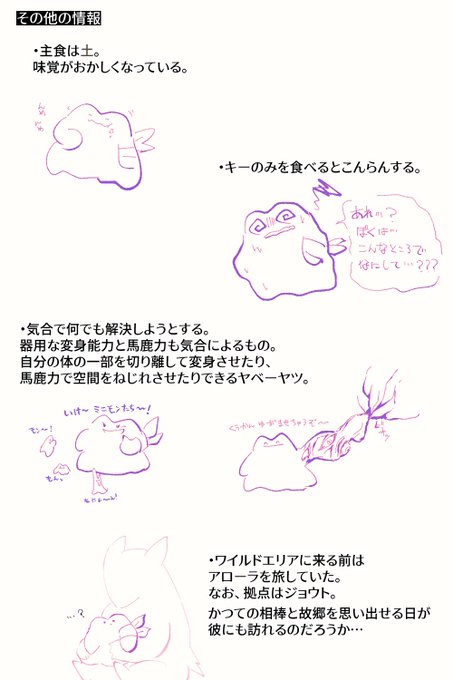 その他の情報
・主食は土。
味覚がおかしくなっている。
・キーのみを食べるとこんらんする。
あれ…?
ぼくは…
こんなところで
なにして…???
・気合で何でも解決しようとする。
器用な変身能力と馬鹿力も気合によるもの。
自分の体の一部を切り離して変身させたり、
馬鹿力で空間をねじれさせたりできるヤベーヤツ。
いけ〜ミニモンたち〜!
モン〜!
くうかんゆがませちゃうぞ〜
・ワイルドエリアに来る前は
アローラを旅していた。
なお、拠点はジョウト。
かつての相棒と故郷を思い出せる日が
彼にも訪れるのだろうか…
…?